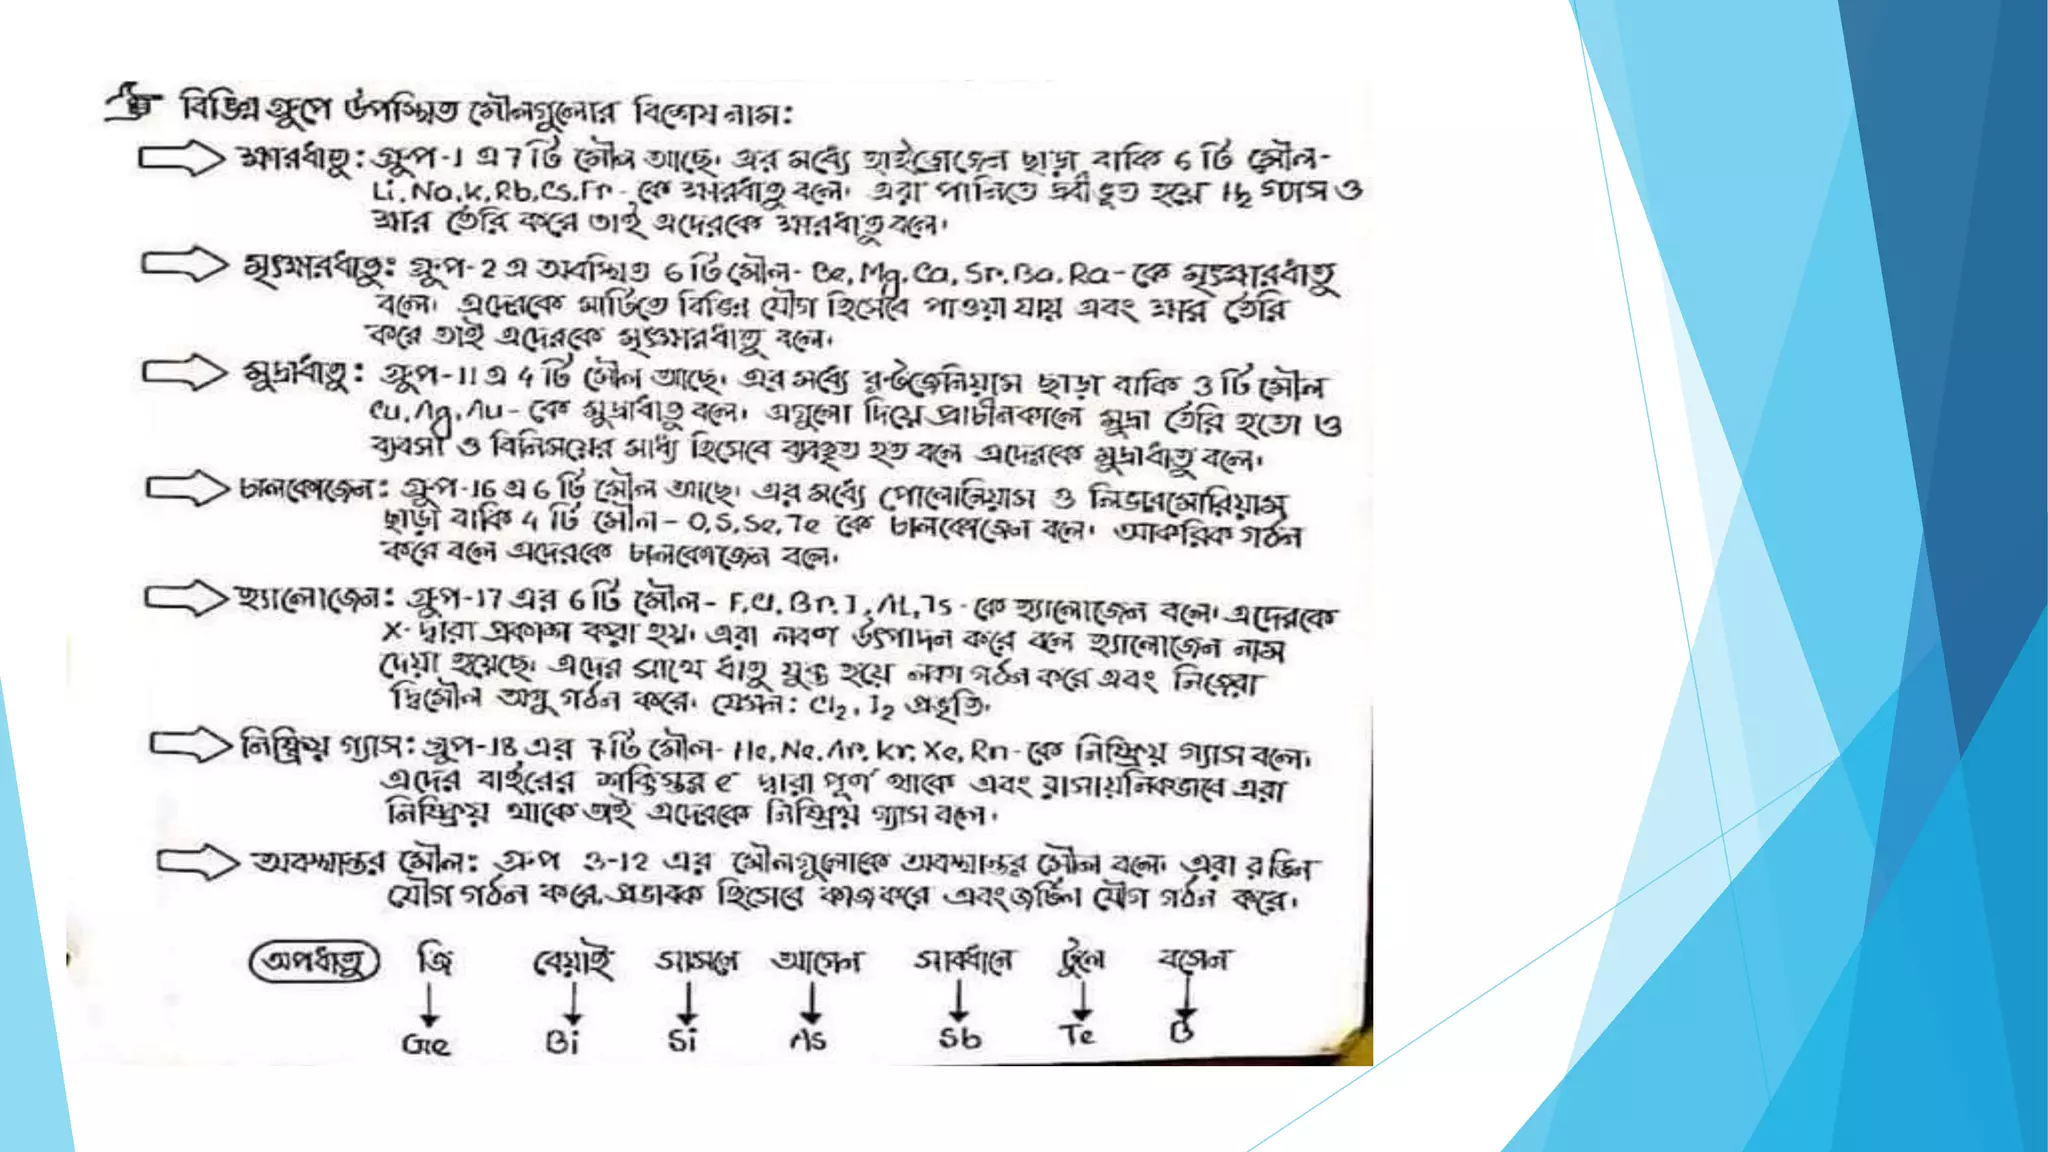 বিভিন্ন গ্রুপে উপস্থিত মৌলগুলোর বিশেষ নাম:
ক্ষারধাতু: গ্রুপ-1 এ 7 টি মৌল আছে। এর মধ্যে হাইড্রোজেন ছাড়া বাকি 6 টি মৌল-
Li, Na, K, Rb, Cs, Fr - কে ক্ষারধাতু বলে। এরা পানিতে দ্রবীভূত হয়ে H₂ গ্যাস ও
ক্ষার তৈরি করে তাই এদেরকে ক্ষারধাতু বলে।
মৃৎক্ষারধাতু: গ্রুপ-2 এ অবস্থিত 6 টি মৌল- Be, Mg, Ca, Sr, Ba, Ra- কে মৃৎক্ষারধাতু
বলে। এদেরকে মাটিতে বিভিন্ন যৌগ হিসেবে পাওয়া যায় এবং ক্ষার তৈরি
করে তাই এদেরকে মৃৎক্ষারধাতু বলে।
মুদ্রাধাতু: গ্রুপ-11 এ 4 টি মৌল আছে। এর মধ্যে রন্টজেনিয়াম ছাড়া বাকি 3 টি মৌল
Cu, Ag, Au - কে মুদ্রাধাতু বলে। এগুলো দিয়ে প্রাচীনকালে মুদ্রা তৈরি হতো ও
ব্যবসা ও বিনিময়ের মাধ্য হিসেবে ব্যবহৃত হত বলে এদেরকে মুদ্রাধাতু বলে।
চালকোজেন: গ্রুপ-16 এ 6 টি মৌল আছে। এর মধ্যে পোলোনিয়াম ও লিভারমোরিয়াম
ছাড়া বাকি 4 টি মৌল - O, S, Se, Te কে চালকোজেন বলে। আকরিক গঠন
করে বলে এদেরকে চালকোজেন বলে।
হ্যালোজেন: গ্রুপ-17 এর 6 টি মৌল - F, Cl, Br, I, At, Ts - কে হ্যালোজেন বলে। এদেরকে
X- দ্বারা প্রকাশ করা হয়। এরা লবণ উৎপাদন করে বলে হ্যালোজেন নাম
দেয়া হয়েছে। এদের সাথে ধাতু যুক্ত হয়ে গঠন করে এবং নিজেরা
দ্বিমৌল অনু গঠন করে। যেমন: Cl₂, I₂ প্রভৃতি।
নিষ্ক্রিয় গ্যাস: গ্রুপ-18 এর 7 টি মৌল- He, Ne, Ar, Kr, Xe, Rn - কে নিষ্ক্রিয় গ্যাস বলে।
এদের বাইরের শক্তিস্তর e⁻ দ্বারা পূর্ণ থাকে এবং রাসায়নিকভাবে এরা
নিষ্ক্রিয় থাকে তাই এদেরকে নিষ্ক্রিয় গ্যাস বলে।
অবস্থান্তর মৌল: গ্রুপ 3-12 এর মৌলগুলোকে অবস্থান্তর মৌল বলে। এরা রঙিন
যৌগ গঠন করে, প্রভাবক হিসেবে কাজ করে এবং জটিল যৌগ গঠন করে।
অপধাতু জি বেয়াই সামনে আসেন সাবধানে টুলে বসেন
Ge Bi Si As Sb Te B